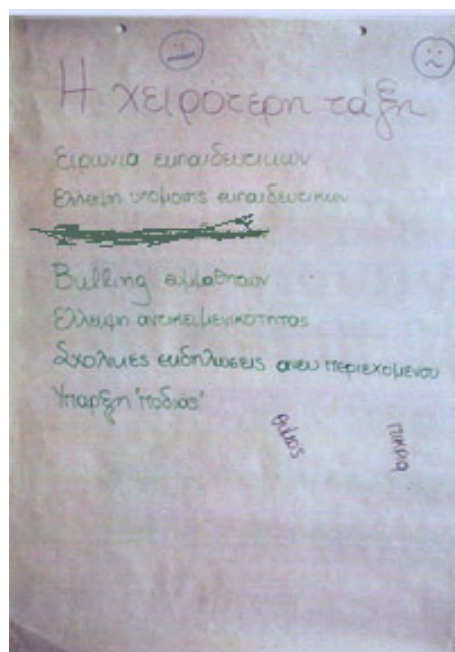 Η χειρότερη τάξη
Ειρωνια εκπαιδευτικων
Ελλειψη υπομονης εκπαιδευτικων
Bulling συμμαθητων
Ελλειψη αντικειμενικοτητας
Σχολικες εκδηλωσεις ανευ περιεχομενου
Υπαρξη 'ποδιας'
πικρα